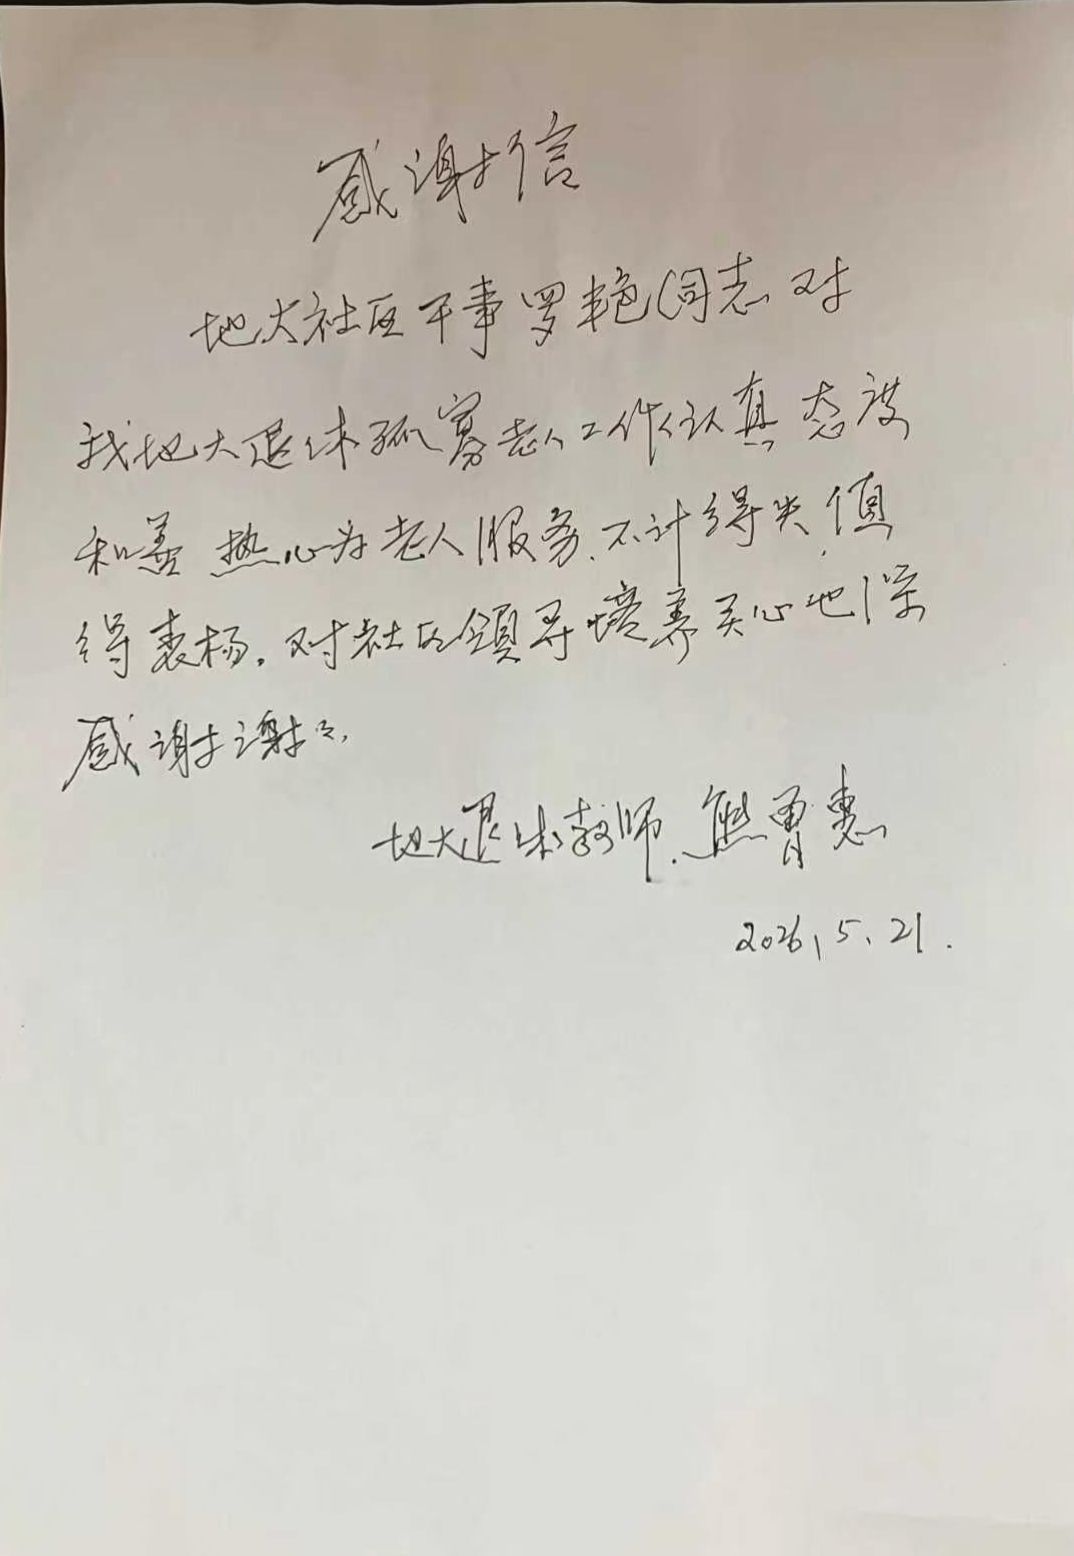 感谢信
地大社区干事罗艳同志对
我地大退休孤寡老人工作认真态度
和善热心为老人服务、不计得失,值
得表杨。对社区领导培养关心他深
感谢谢谢。
地大退休教师.熊曾惠
2026,5、21.